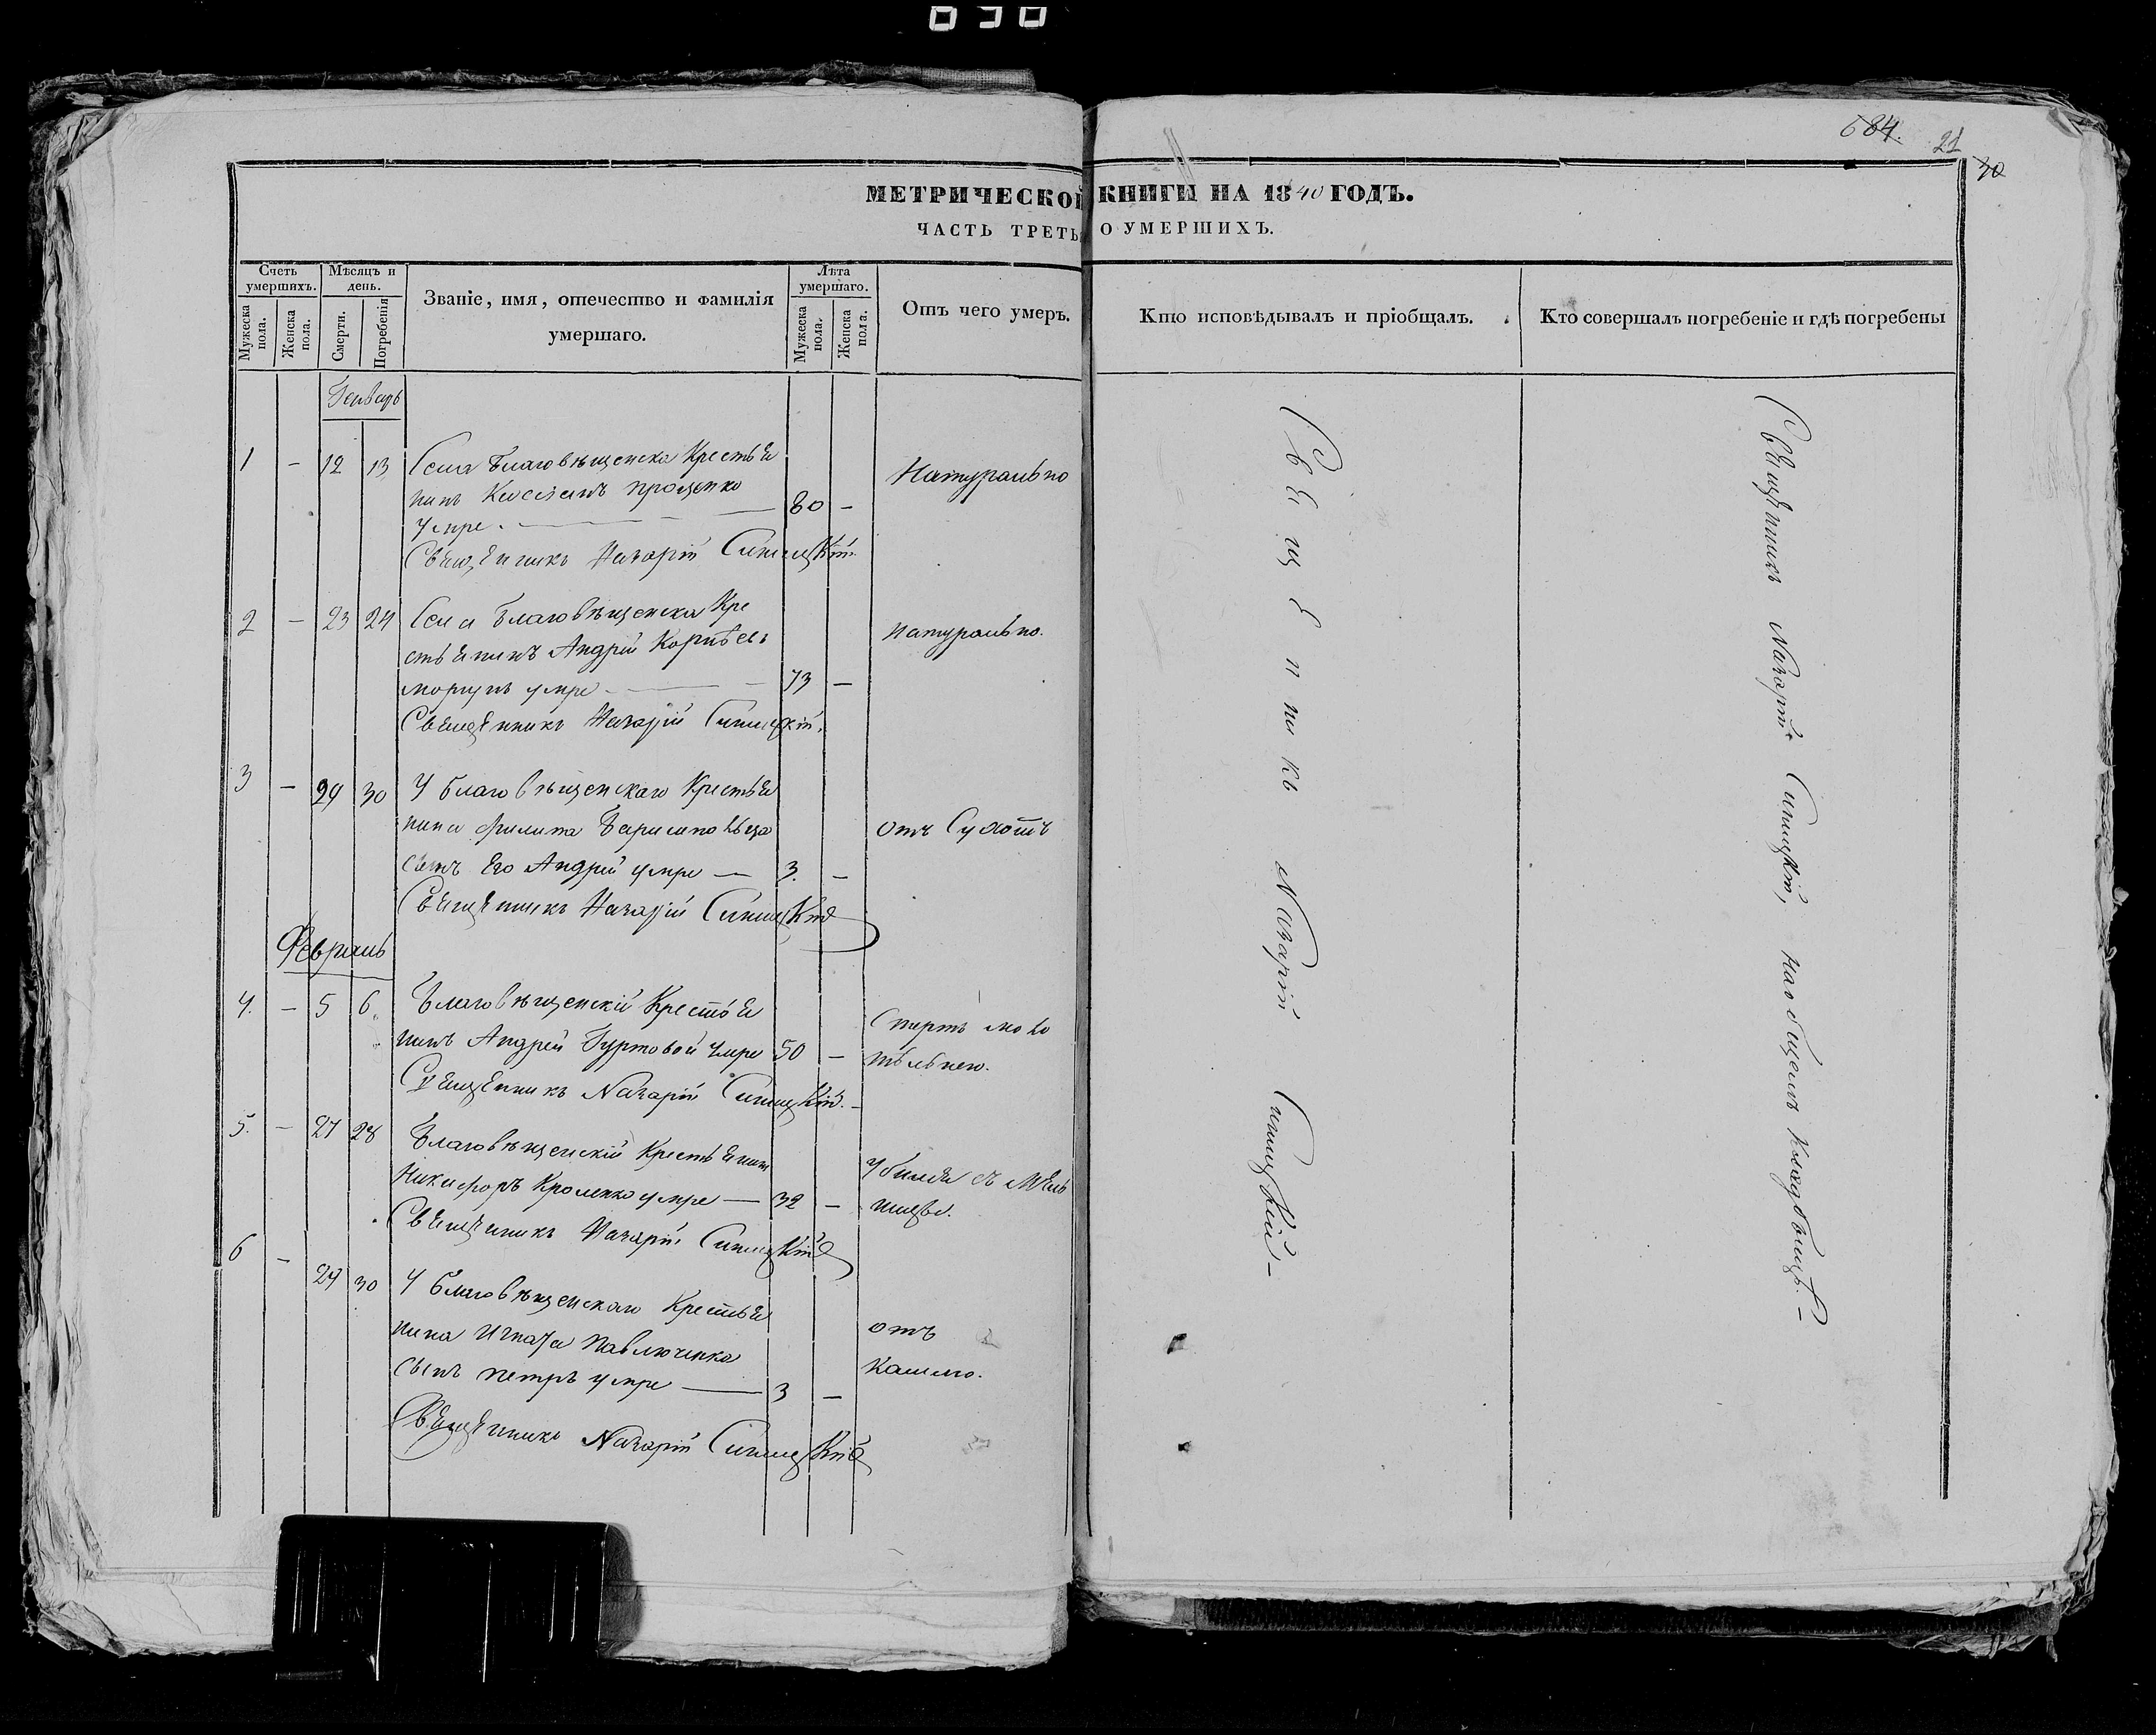 030
684.
21
30
МЕТРИЧЕСКОЙ КНИГИ НА 1840 ГОДЪ.
ЧАСТЬ ТРЕТЬЯ О УМЕРШИХЪ.
Счетъ умершихъ.
Мужеска пола.
Женска пола.
Мѣсяцъ и день.
Смерти.
Погребенія
Званіе, имя, отечество и фамилія
умершаго.
Лѣта умершаго.
Мужеска пола.
Женска пола.
Отъ чего умеръ.
Кто исповѣдывалъ и пріобщалъ.
Кто совершалъ погребеніе и гдѣ погребены
Генварь
1 - 12 13 Села Благовѣщенска Крестья
нинъ Кассіянъ Проценко 80 - Натурально
умре.
Священникъ Назарій Синицкій
2 - 23 24 Села Благовѣщенска Кре
стьянинъ Андрій натурально.
умре 73 -
Священникъ Назарій Синицкій.
3 - 29 30 У Благовѣщенскаго Крестья
нина Филипа отъ Сухотъ
сынъ Его Андрей умре 3. -
Священникъ Назарій Синицкій
Февраль
4. - 5 6 Благовѣщенскій Крестья
нинъ Андрей Гуртовой умре 50 -
Священникъ Назарій Синицкій.
5. - 27 28 Благовѣщенскій Крестьянинъ
Никифоръ умре 32 -
Священникъ Назарій Синицкій
6 - 29 30 У Благовѣщенскаго Крестья
нина Игната Павлюченка отъ
сынъ Петръ умре 3 - Кашлю.
Священникъ Назарій Синицкій
Священникъ Назарій Синицкій
Священникъ Назарій Синицкій, на общемъ кладбищѣ.